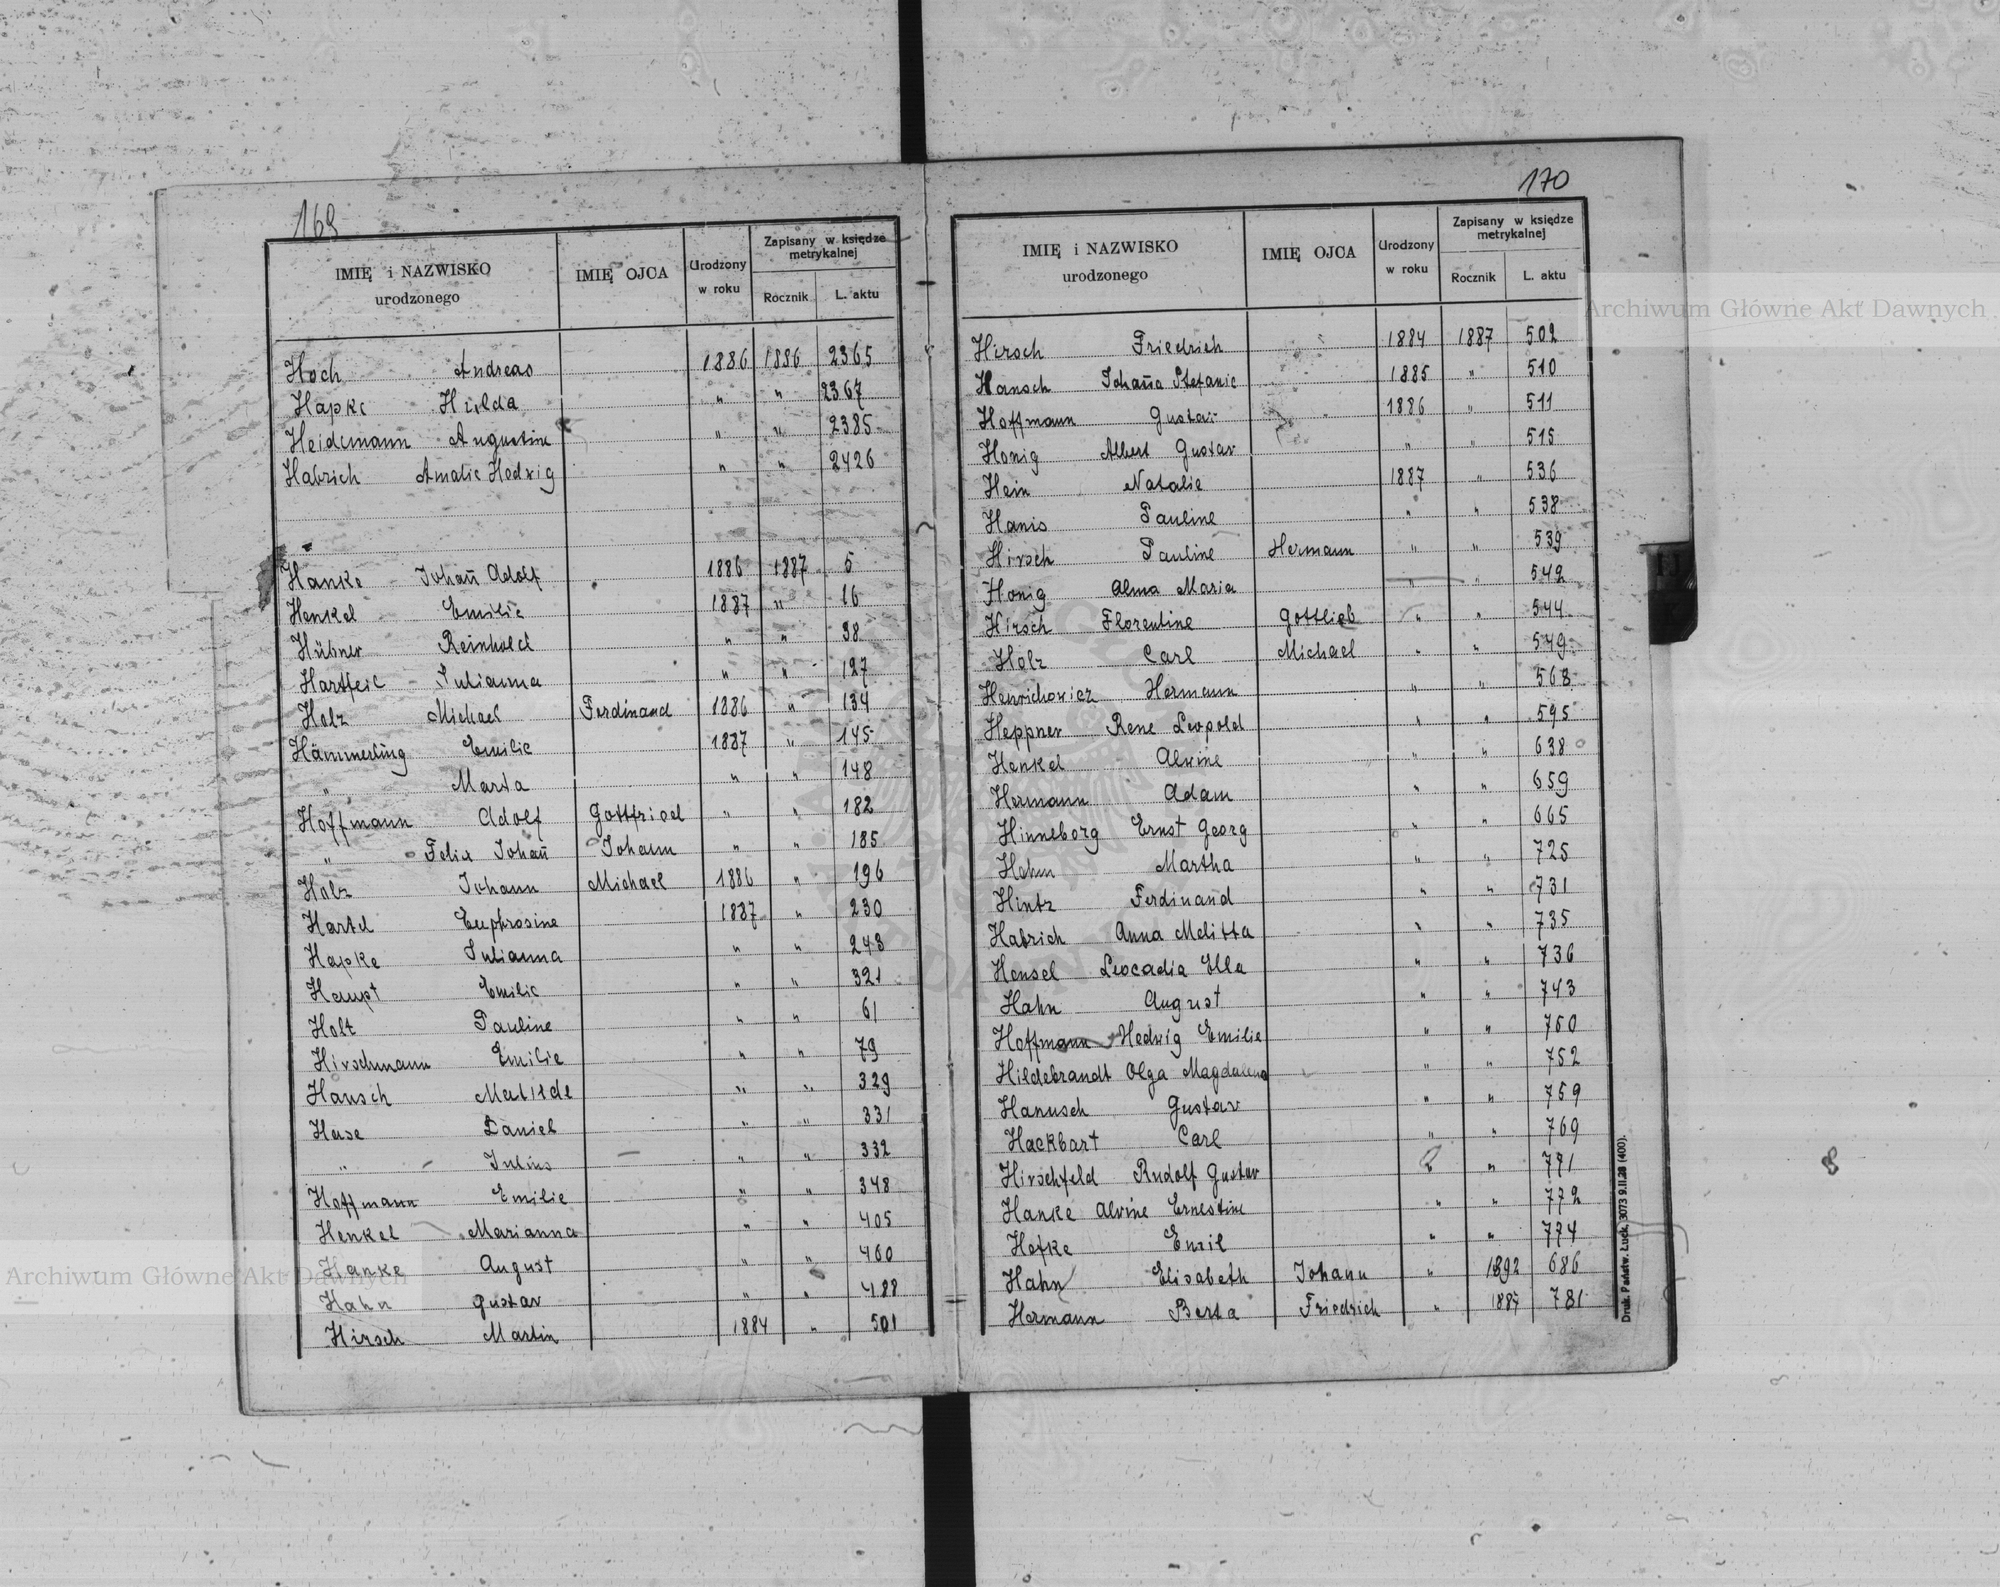 169
IMIĘ i NAZWISKO urodzonego IMIĘ OJCA Urodzony w roku Zapisany w księdze metrykalnej Rocznik L. aktu
Hoch Andreas 1886 1886 2365
Hapke Hulda " " 2367
Heidemann Augustin " " 2385
Habrich Amalie Hedwig " " 2426
Hanke Johañ Adolf 1886 1887 5
Henkel Emilie 1887 " 16
Hübner Reinhold " " 38
Hartfeil Julianna " " 127
Holz Michael Ferdinand 1886 " 134
Hämmerling Emilie 1887 " 145
" Marta " " 148
Hoffmann Adolf Gottfried " " 182
" Felix Johañ Johann " " 185
Holz Johann Michael 1886 " 196
Hartel Euphrosine 1887 " 230
Hapke Julianna " " 248
Haupt Emilie " " 321
Holt Pauline " " 61
Hirschmann Emilie " " 79
Hansch Matilde " " 329
Hase Daniel " " 331
" Julius " " 332
Hoffmann Emilie " " 348
Henkel Marianna " " 405
Hanke August " " 460
Hahn Gustav " " 488
Hirsch Martin 1884 " 501
170
IMIĘ i NAZWISKO urodzonego IMIĘ OJCA Urodzony w roku Zapisany w księdze metrykalnej Rocznik L. aktu
Hirsch Friedrich 1884 1887 502
Hansch Johaña Stefanie 1885 " 510
Hoffmann Gustav 1886 " 511
Honig Albert Gustav " " 515
Hein Natalie 1887 " 536
Hanis Pauline " " 538
Hirsch Pauline Hermann " " 539
Honig Alma Maria " " 542
Hirsch Florentine Gottlieb " " 544
Holz Carl Michael " " 549
Henrichowicz Hermann " " 568
Heppner Rene Leopold " " 595
Henkel Alvine " " 638
Hermann Adam " " 659
Hinneborg Ernst Georg " " 665
Hahn Martha " " 725
Hintz Ferdinand " " 731
Habrich Anna Melitta " " 735
Hensel Leocadia Ella " " 736
Hahn August " " 743
Hoffmann Hedwig Emilie " " 750
Hildebrandt Olga Magdalena " " 752
Hanusch Gustav " " 759
Hackbart Carl " " 769
Hirschfeld Rudolf Gustav " " 771
Hanke Alvine Ernestine " " 772
Hefke Emil " " 774
Hahn Elisabeth Johann " 1892 686
Hermann Berta Friedrich " 1887 781
Druk. Państw. Łuck, 3073 9.II.28 (400).
Archiwum Główne Akt Dawnych
Archiwum Główne Akt Dawnych